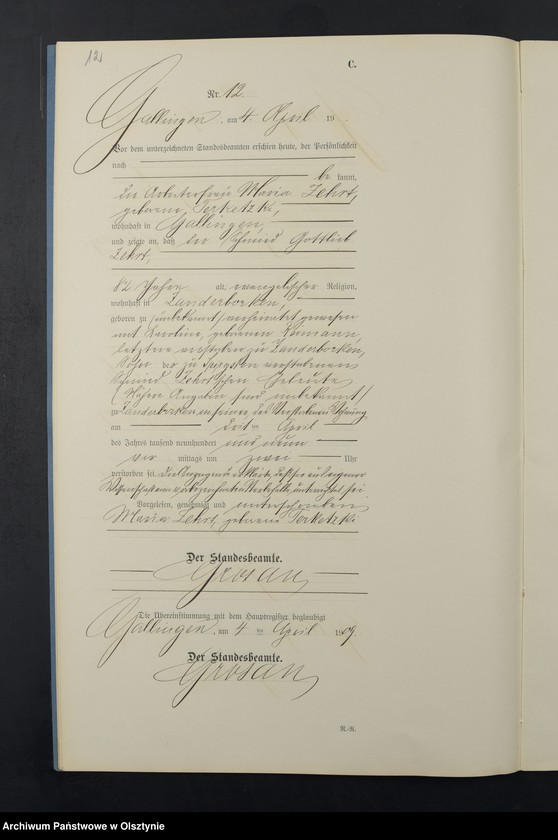 12
C.
Nr. 12.
Gallingen, am 4 April 19
Vor dem unterzeichneten Standesbeamten erschien heute, der Persönlichkeit
nach
be kannt,
die Arbeiterfrau Maria Zehrt,
geborene Perketzki,
wohnhaft in Gallingen,
und zeigte an, daß der Schmied Gottlieb
Zehrt,
82 Jahre alt, evangelischer Religion,
wohnhaft in Landerbocken,
geboren zu (unbekannt) verheiratet gewesen
mit Karoline, geborenen Reimann,
letztere verstorben zu Landerbocken,
Sohn der zu verstorbenen
Schmied Zehrt'schen Eheleute
(Nähere Angaben sind unbekannt)
zu Landerbocken, in seiner, des Verstorbenen Wohnung
am drit ten April
des Jahres tausend neunhundert und neun
vor mittags um zwei Uhr
verstorben sei. Die Anzeigende erklärte, daß sie aus eigener
Wissenschaft von vorbezeichneten Sterbefalle unterrichtet sei.
Vorgelesen, genehmigt und unterschrieben
Maria Zehrt, geborene Perketzki
Der Standesbeamte.
Grosan
Die Übereinstimmung mit dem Hauptregister beglaubigt
Gallingen, am 4 ten April 1909.
Der Standesbeamte.
Grosan
R.-R.
Archiwum Państwowe w Olsztynie